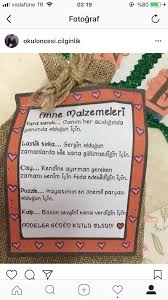 vodafone TR
02:19
%80
Fotoğraf
okuloncesi.cilginlik
Anne Malzemeleri
Canım her acıdığında
yanımda olduğun için.
Lastik toka... Gergin olduğun
zamanlarda bile bana gülümsediğin için.
Çay... Kendine ayırman gereken
zamanları benim için feda edebildiğin için.
Puzzle... Hayatımın en önemli parçası
olduğun için.
Kalp... Bütün sevgini bana verdiğin için.
ANNELER GÜNÜN KUTLU OLSUN